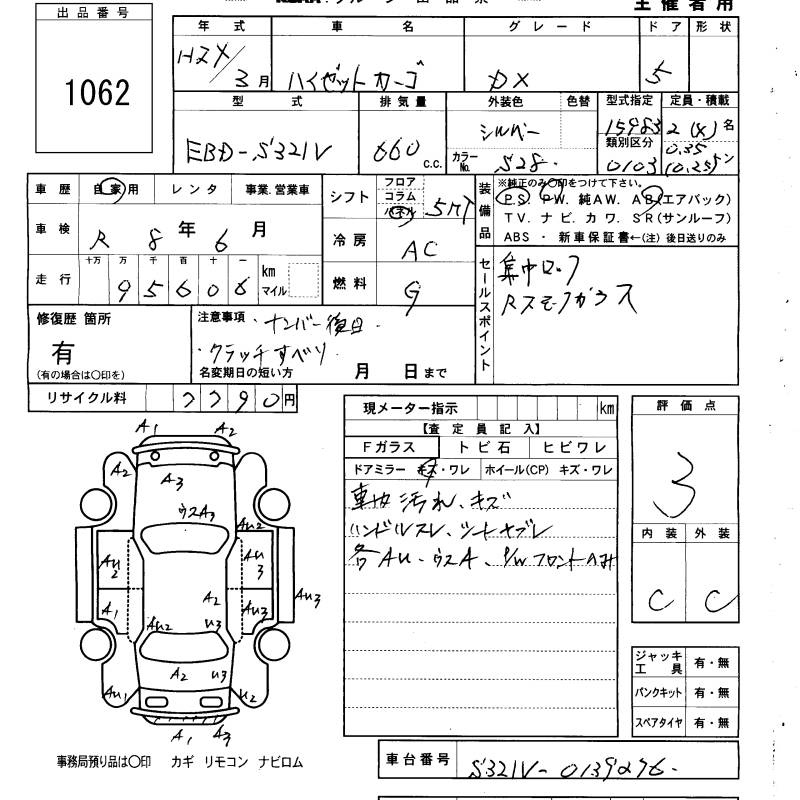 主催者用
出品番号
1062
年式 車名 グレード ドア 形状
H2X/3月 ハイゼットカーゴ DX 5
型式 排気量 外装色 色替 型式指定 定員・積載
EBD-S321V 660 c.c. シルバー 15983 2(4)名
カラーNo. S28 類別区分 0103 0.35(0.25)トン
車歴 自家用 レンタ 事業.営業車
シフト フロア コラム パネル 5MT
装備品 ※純正のみ〇印をつけて下さい。
P.S. P.W. 純AW. AB(エアバック)
TV. ナビ. カワ. SR(サンルーフ)
ABS ・ 新車保証書←(注) 後日送りのみ
車検 R 8年 6月
冷房 AC
走行 十万 万 千 百 十 一 km マイル
95606
燃料 G
セールスポイント 集中ロック
Rスモークガラス
修復歴 箇所
有
(有の場合は〇印を)
注意事項 ・ナンバー後日.
・クラッチすべり.
名変期日の短い方 月 日まで
リサイクル料 7790円
現メーター指示 km
【査定員記入】
Fガラス トビ石 ヒビワレ
ドアミラー キズ・ワレ ホイール(CP) キズ・ワレ
車内汚れ、キズ
ハンドルスレ、シートヤブレ
各AU、ウスA、P/Wフロントのみ
評価点
3
内装 外装
C C
A1 A2
A2 A3
ウスA3
AU2
AU2 AU3
A1 A2 AU3 AU3
AU2 U3
A2 U3
AU1 U2
A1 A3
ジャッキ工具 有・無
パンクキット 有・無
スペアタイヤ 有・無
事務局預り品は〇印 カギ リモコン ナビロム
車台番号 S321V-0139276.